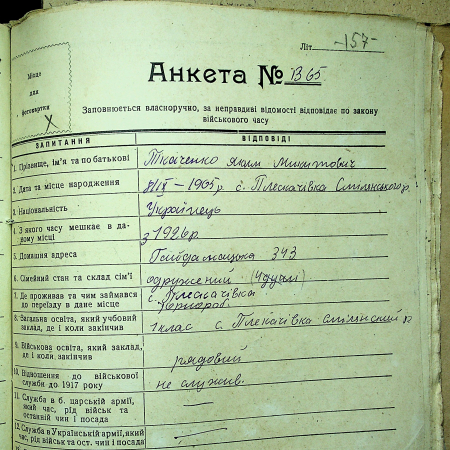 Літ. -157-
Місце
для
фотокартки
Х
Анкета № В65
Заповнюється власноручно, за неправдиві відомості відповідає по закону
військового часу
ЗАПИТАННЯ ВІДПОВІДІ
1. Прізвище, ім'я та по батькові Ткаченко Яким Микитович
2. Дата та місце народження 8/ІХ – 1905 р. с. Плескачівка Смілянського р.
3. Національність Українець
4. З якого часу мешкає в да-
ному місці з 1926 р.
5. Домашня адреса 343
6. Сімейний стан та склад сім'ї одружений
7. Де проживав та чим займався
до переїзду в дане місце с. Плескачівка
8. Загальна освіта, який учбовий
заклад, де і коли закінчив 1 клас с. Плескачівка
9. Військова освіта, який заклад,
де і коли закінчив рядовий
10. Відношення до військової
служби до 1917 року не служив.
11. Служба в б. царській армії,
який час, рід військ та
останній чин і посада
12. Служба в Українській армії, який
час, рід військ та ост. чин і посада